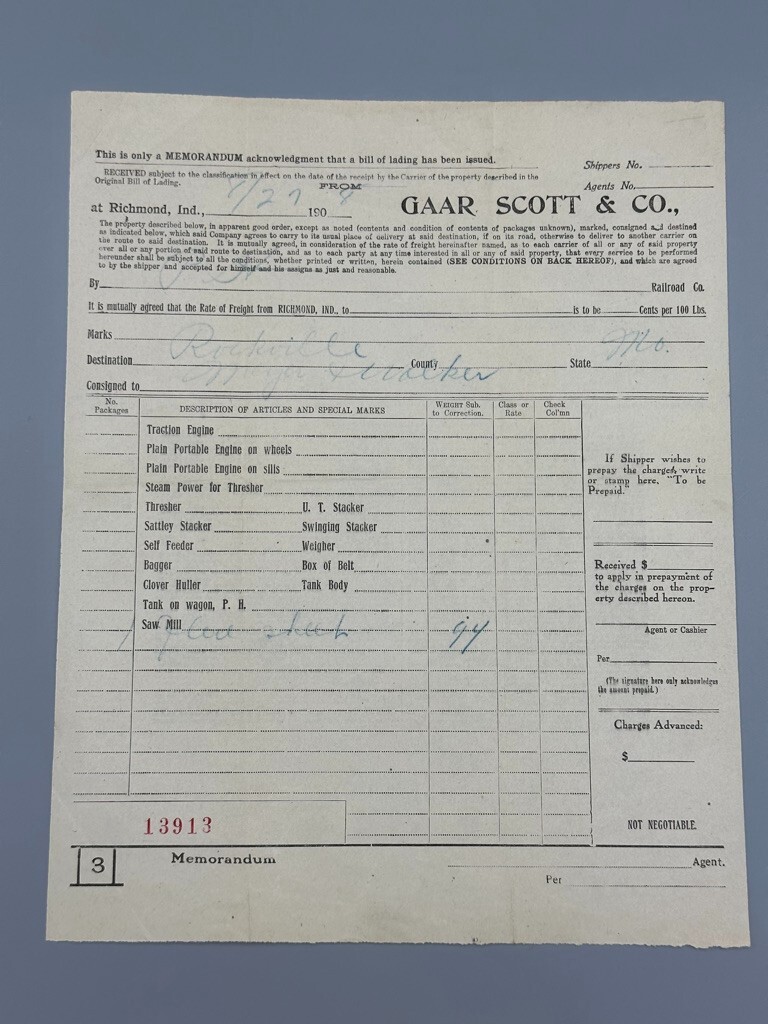 This is only a MEMORANDUM acknowledgment that a bill of lading has been issued.
Shippers No.
RECEIVED subject to the classification in effect on the date of the receipt by the Carrier of the property described in the
Original Bill of Lading.
Agents No.
FROM
at Richmond, Ind., 7/27 190 8
GAAR SCOTT & CO.,
The property described below, in apparent good order, except as noted (contents and condition of contents of packages unknown), marked, consigned and destined
as indicated below, which said Company agrees to carry to its usual place of delivery at said destination, if on its road, otherwise to deliver to another carrier on
the route to said destination. It is mutually agreed, in consideration of the rate of freight hereinafter named, as to each carrier of all or any of said property
over all or any portion of said route to destination, and as to each party at any time interested in all or any of said property, that every service to be performed
hereunder shall be subject to all the conditions, whether printed or written, herein contained (SEE CONDITIONS ON BACK HEREOF), and which are agreed
to by the shipper and accepted for himself and his assigns as just and reasonable.
By Railroad Co.
It is mutually agreed that the Rate of Freight from RICHMOND, IND., to is to be Cents per 100 Lbs.
Marks
Destination Rockville County State Mo.
Consigned to & Walker
No. Packages
DESCRIPTION OF ARTICLES AND SPECIAL MARKS
WEIGHT Sub. to Correction.
Class or Rate
Check Col'mn
Traction Engine
Plain Portable Engine on wheels
Plain Portable Engine on sills
Steam Power for Thresher
Thresher U. T. Stacker
Sattley Stacker Swinging Stacker
Self Feeder Weigher
Bagger Box of Belt
Clover Huller Tank Body
Tank on wagon, P. H.
Saw Mill
1 Flue sheet 94
If Shipper wishes to
prepay the charges, write
or stamp here, "To be
Prepaid."
Received $
to apply in prepayment of
the charges on the prop-
erty described hereon.
Agent or Cashier
Per
(The signature here only acknowledges
the amount prepaid.)
Charges Advanced:
$
NOT NEGOTIABLE.
13913
3 Memorandum
Agent.
Per